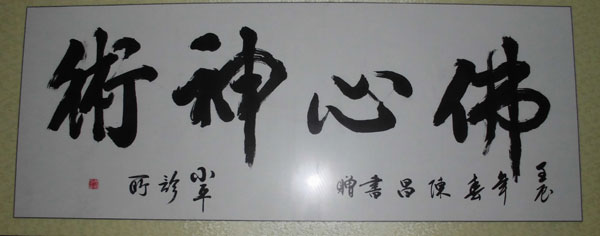 佛心神術
壬辰年春陳昌書贈
小平診所